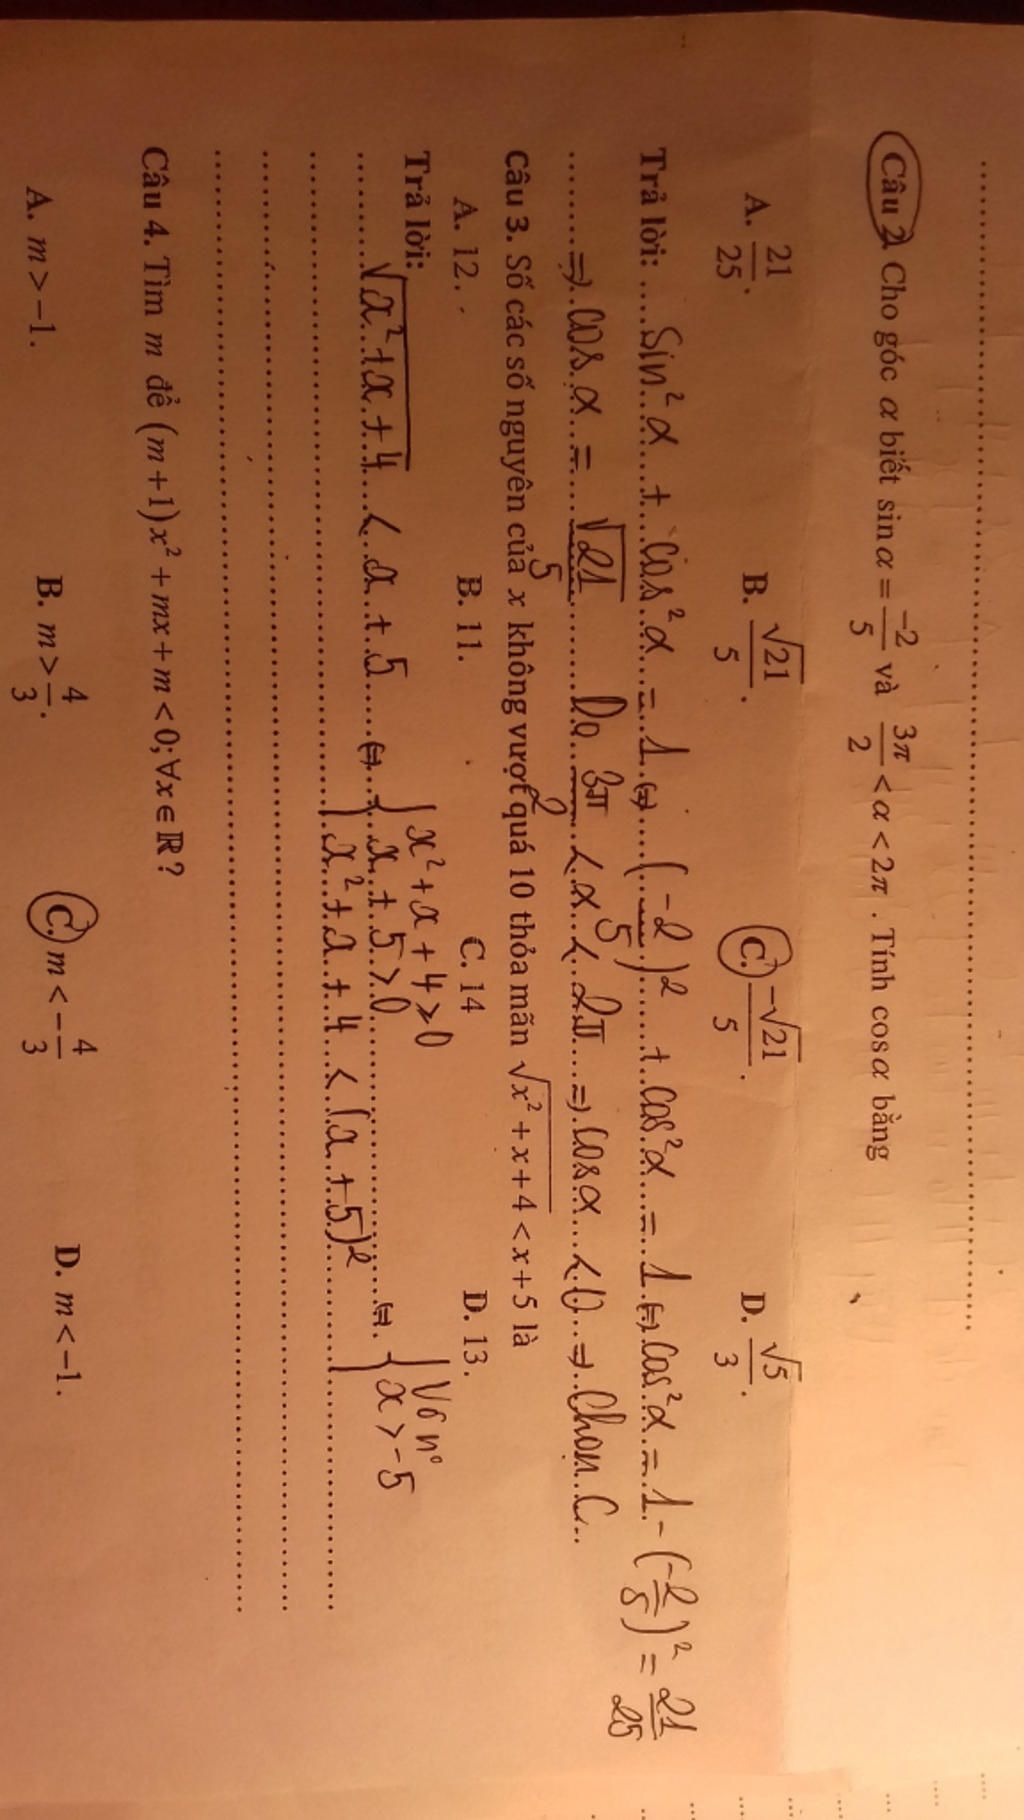 Câu 2. Cho góc α biết sin α = -2/5 và 3π/2 < α < 2π. Tính cos α bằng
A. 21/25. B. √21/5. C. -√21/5. D. √5/3.
Trả lời: Sin²α + cos²α = 1 ⇔ (-2/5)² + cos²α = 1 ⇔ cos²α = 1 - (-2/5)² = 21/25
⇒ cos α = √21/5 Do 3π/2 < α < 2π ⇒ cosα < 0 ⇒ Chọn C
Câu 3. Số các số nguyên của x không vượt quá 10 thỏa mãn √(x² + x + 4) < x + 5 là
A. 12. B. 11. C. 14 D. 13.
Trả lời:
√(x² + x + 4) < x + 5 ⇔ { x² + x + 4 ≥ 0 ⇔ { Vô n⁰
x + 5 > 0 x > -5
x² + x + 4 < (x + 5)²
Câu 4. Tìm m để (m+1)x² + mx + m < 0; ∀x ∈ ℝ?
A. m > -1. B. m > 4/3. C. m < -4/3 D. m < -1.